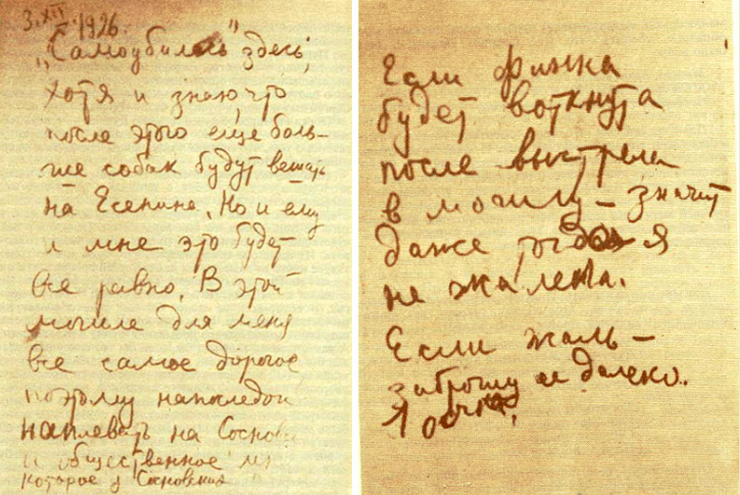 3.XII.1926.
„Самоубилась" здесь,
хотя и знаю, что
после этого еще боль-
ше собак будут вешать
на Есенина. Но и ему
и мне это будет
все равно. В этой
могиле для меня
все самое дорогое,
поэтому напоследок
наплевать на Соснов
и общественное мн
которое у Сосновския
Если финка
будет воткнута
после выстрела
в могилу – значит
даже тогда я
не жалела.
Если жаль –
заброшу ее далеко.
1 осечка.